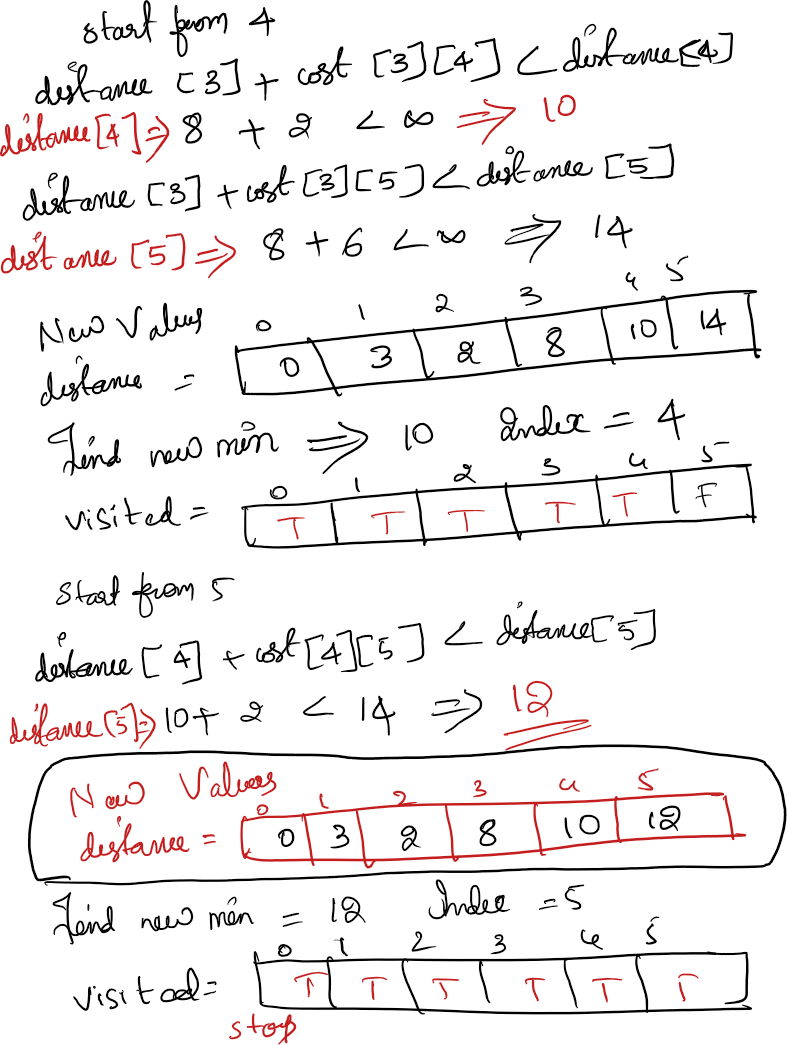 start from 4
distance [3] + cost [3][4] < distance[4]
distance[4] ⇒ 8 + 2 < ∞ ⇒ 10
distance [3] + cost [3][5] < distance [5]
distance [5] ⇒ 8 + 6 < ∞ ⇒ 14
0 1 2 3 4 5
New Values
distance = 0 3 2 8 10 14
Find new min ⇒ 10 Index = 4
0 1 2 3 4 5
visited = T T T T T F
Start from 5
distance [4] + cost [4][5] < distance[5]
distance[5] ⇒ 10 + 2 < 14 ⇒ 12
New Values
0 1 2 3 4 5
distance = 0 3 2 8 10 12
Find new min = 12 Index = 5
0 1 2 3 4 5
visited = T T T T T T
stop